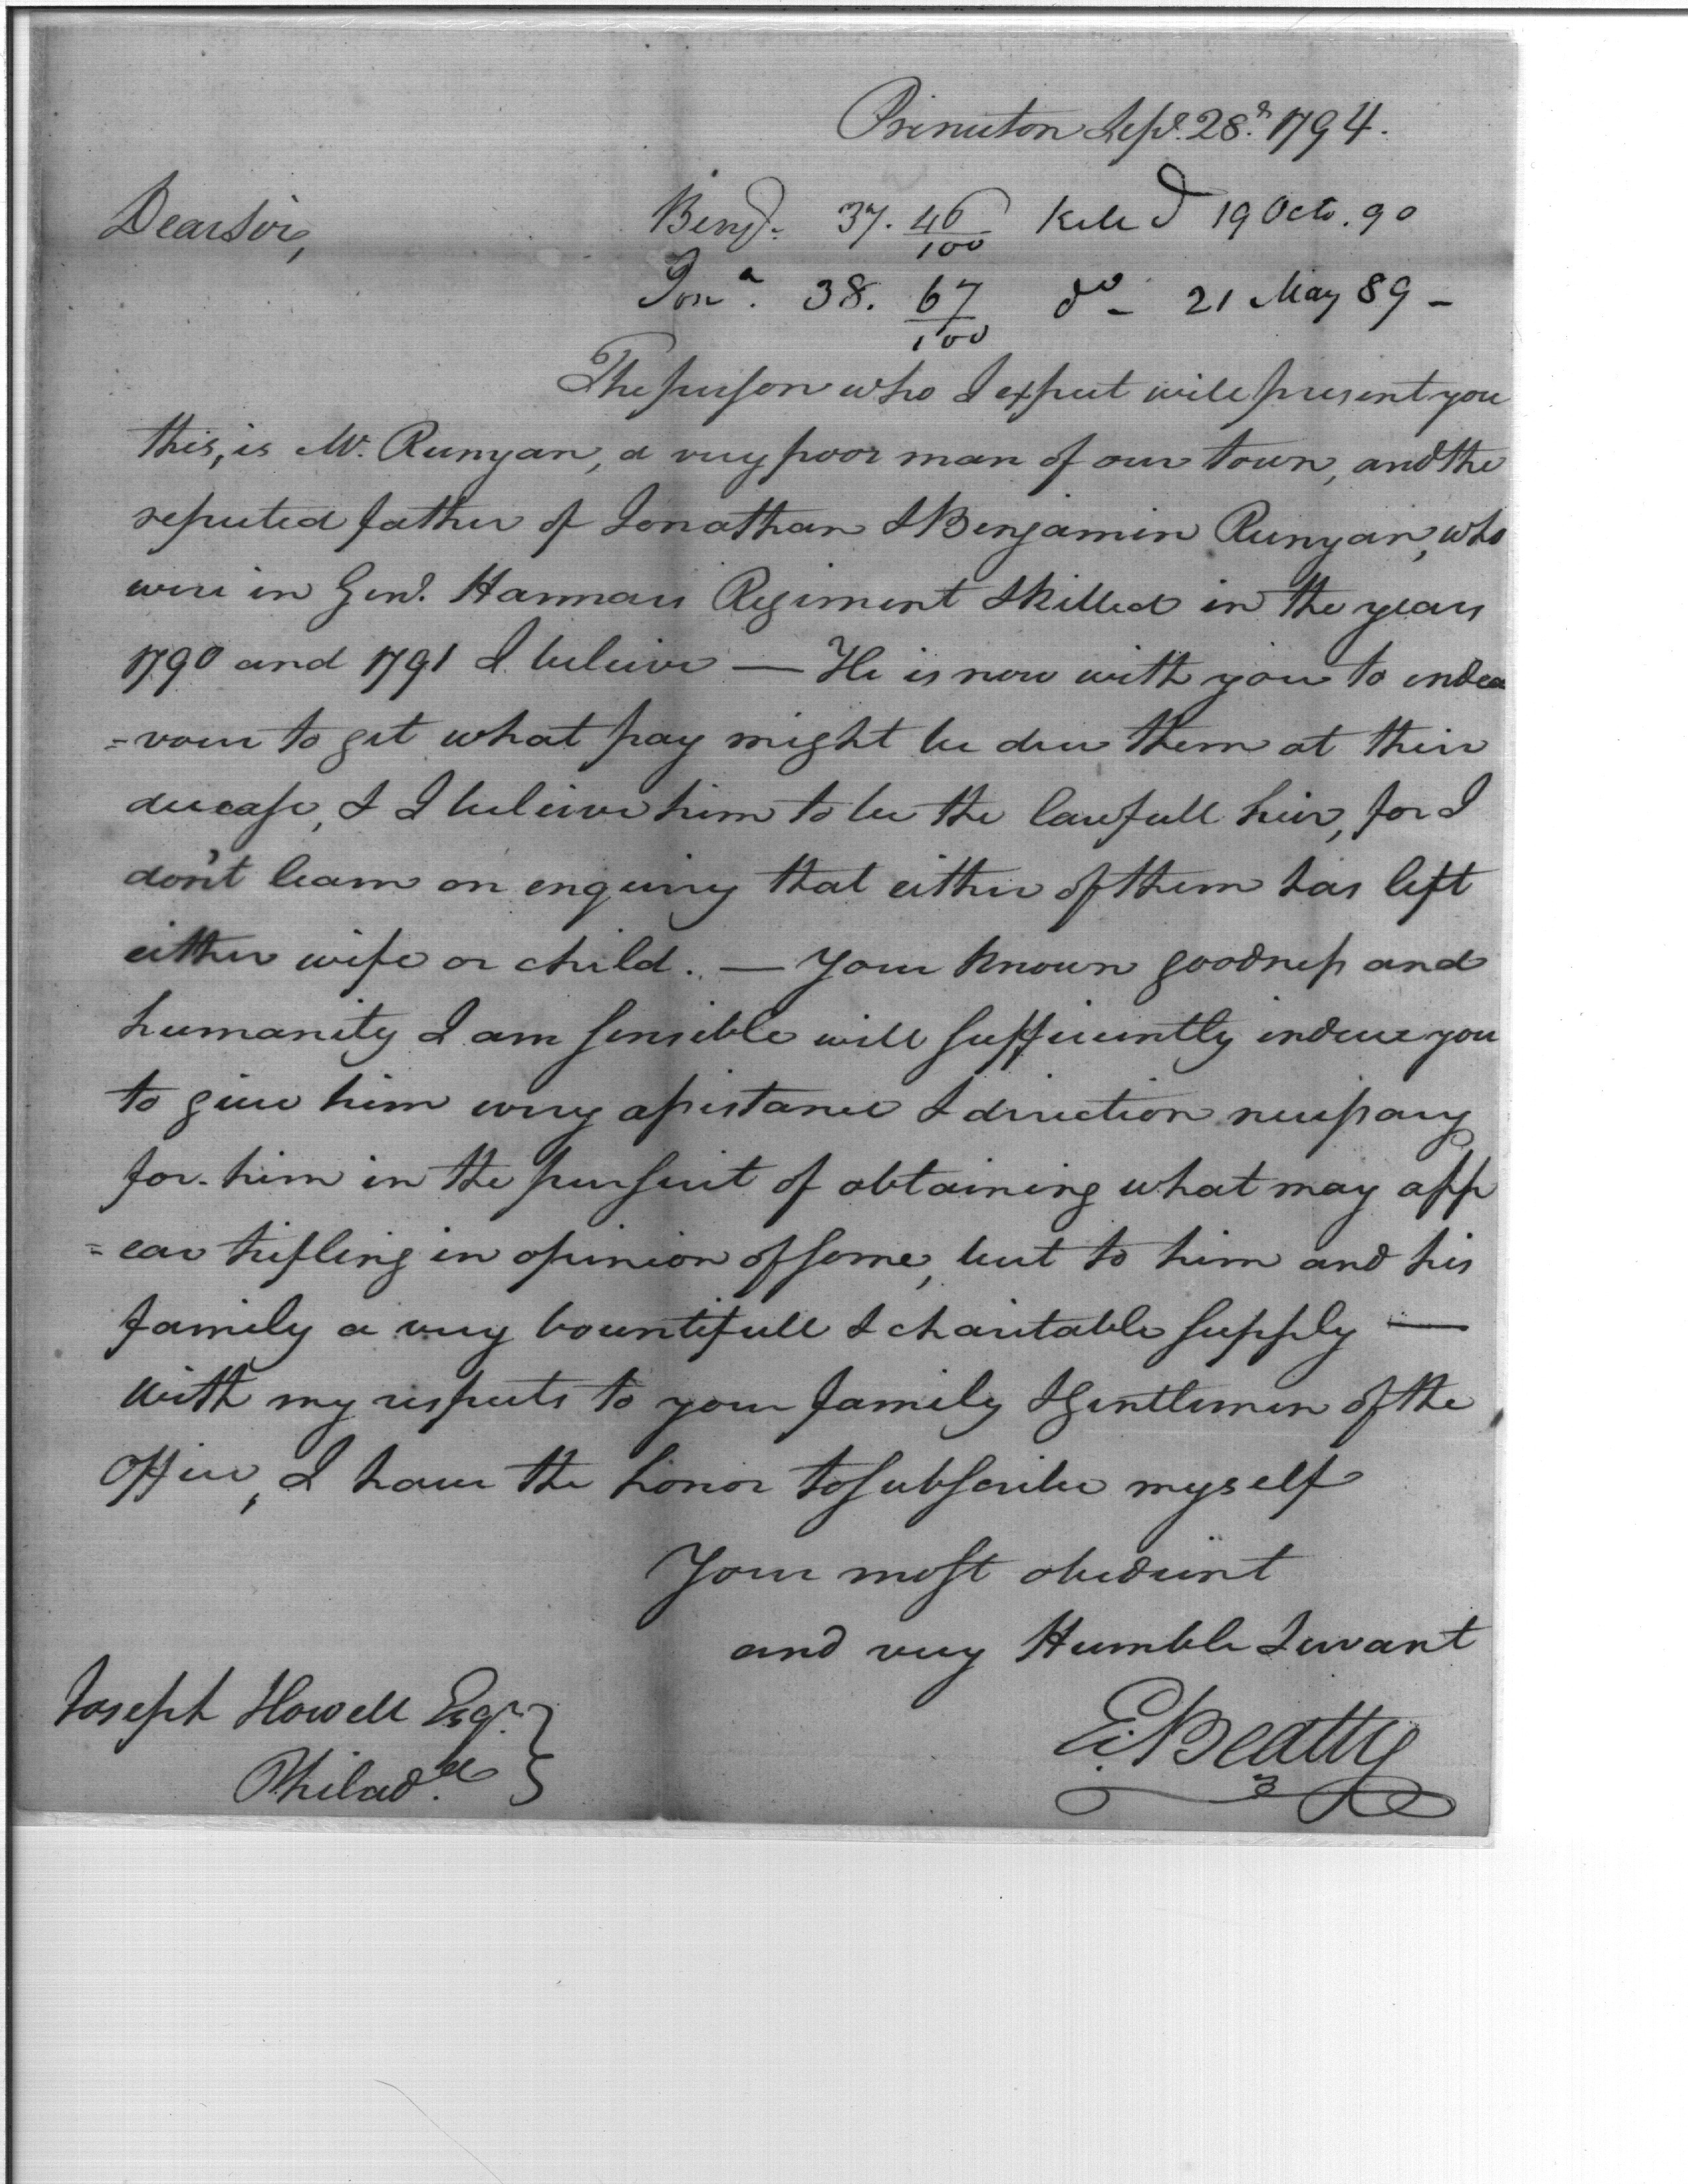 Princeton Sepr. 28th 1794.
Dear Sir,
Benjn. 37. 46/100 Killed 19 Octo. 90
Jona. 38. 67/100 do - 21 May 89 -
The person who I expect will present you
this, is Mr. Runyan, a very poor man of our town, and the
reputed father of Jonathan & Benjamin Runyan, who
were in Genl. Harmars Regiment & killed in the years
1790 and 1791 I beleive — He is now with you to endea
=vour to get what pay might be due them at their
decease, & I beleive him to be the lawfull heir, for I
don't learn on enquiry that either of them has left
either wife or child. — Your known goodness and
humanity I am sensible will sufficiently induce you
to give him every assistance & direction necessary
for him in the pursuit of obtaining what may app
=ear trifling in opinion of some, but to him and his
family a very bountifull & charitable supply —
With my respects to your family & Gentlemen of the
Office, I have the honor to subscribe myself
Your most obedient
and very Humble Servant
E. Beatty
Joseph Howell Esqr.
Philada.